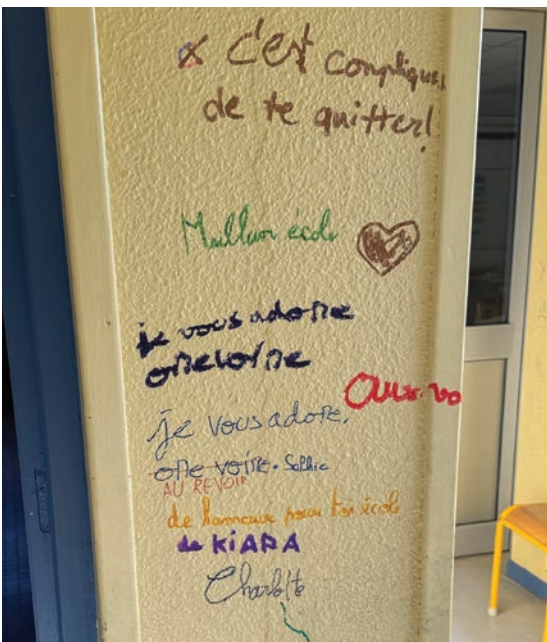 x c'est compliquer
de te quitter!
Meilleur école
je vous adore
orevoire
Ouvr vo
je vous adore.
ore voire. Sophie
AU REVOIR
de l'amour pour toi école
de KiARA
Charlotte